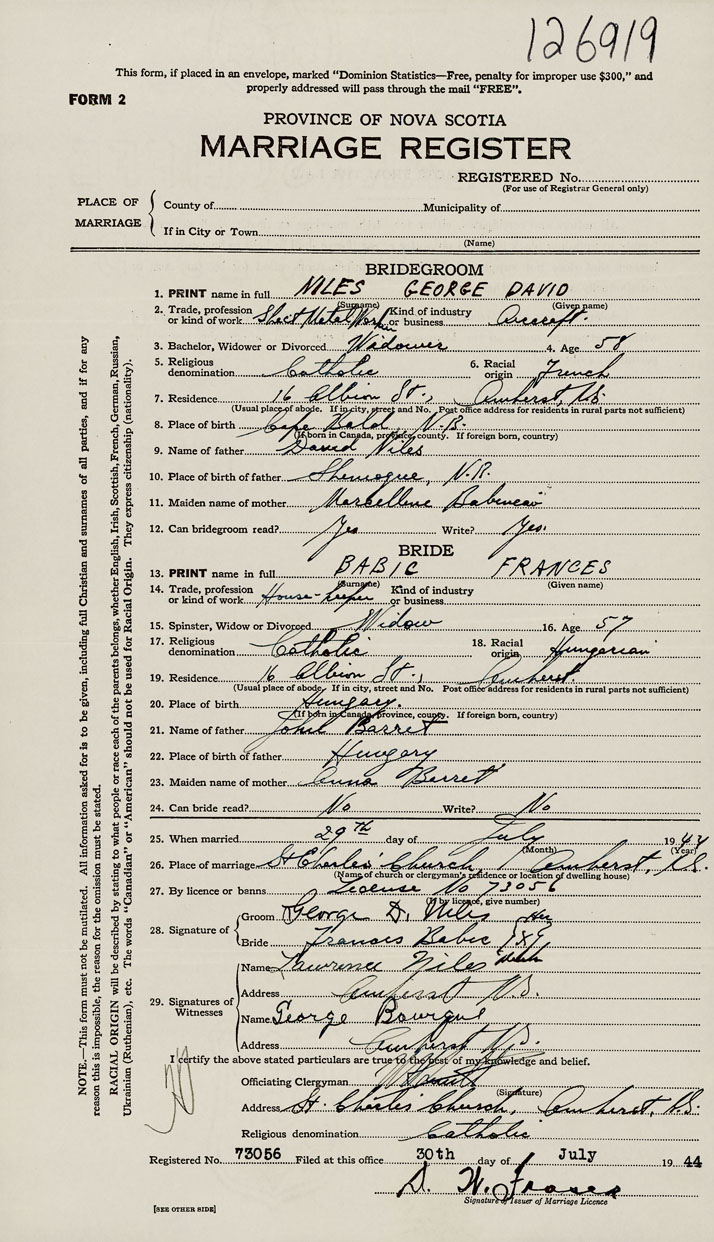 126919
This form, if placed in an envelope, marked "Dominion Statistics—Free, penalty for improper use $300," and
properly addressed will pass through the mail "FREE".
FORM 2
PROVINCE OF NOVA SCOTIA
MARRIAGE REGISTER
REGISTERED No.
(For use of Registrar General only)
PLACE OF MARRIAGE
County of Municipality of
If in City or Town
(Name)
BRIDEGROOM
1. PRINT name in full NILES GEORGE DAVID
(Surname) (Given name)
2. Trade, profession or kind of work Sheet Metal Worker Kind of industry or business Aircraft.
3. Bachelor, Widower or Divorced Widower 4. Age 58
5. Religious denomination Catholic 6. Racial origin French
7. Residence 16 Albion St., Amherst, N.S.
(Usual place of abode. If in city, street and No. Post office address for residents in rural parts not sufficient)
8. Place of birth Cape Bald, N.B.
(If born in Canada, province, county. If foreign born, country)
9. Name of father David Niles
10. Place of birth of father Shemogue, N.B.
11. Maiden name of mother Marcelline Babineau
12. Can bridegroom read? Yes Write? Yes.
BRIDE
13. PRINT name in full BABIC FRANCES
(Surname) (Given name)
14. Trade, profession or kind of work House-keeper Kind of industry or business
15. Spinster, Widow or Divorced Widow 16. Age 57
17. Religious denomination Catholic 18. Racial origin Hungarian
19. Residence 16 Albion St., Amherst.
(Usual place of abode. If in city, street and No. Post office address for residents in rural parts not sufficient)
20. Place of birth Hungary.
(If born in Canada, province, county. If foreign born, country)
21. Name of father John Barret
22. Place of birth of father Hungary
23. Maiden name of mother Anna Barret
24. Can bride read? No Write? No
25. When married 29th day of July 1944
(Month) (Year)
26. Place of marriage St Charles' Church, Amherst, N.S.
(Name of church or clergyman's residence or location of dwelling house)
27. By licence or banns License No 73056
(If by licence, give number)
28. Signature of
Groom George D. Niles
Bride Frances Babic her X mark
29. Signatures of Witnesses
Name Lawrence Niles
Address Amherst N.S.
Name George Bourque
Address Amherst N.S.
I certify the above stated particulars are true to the best of my knowledge and belief.
Officiating Clergyman
(Signature)
Address St. Charles Church, Amherst, N.S.
Religious denomination Catholic
Registered No. 73056 Filed at this office 30th day of July 19 44
D. W. Fraser
Signature of Issuer of Marriage Licence
[SEE OTHER SIDE]
NOTE.—This form must not be mutilated. All information asked for is to be given, including full Christian and surnames of all parties, and if for any
reason this is impossible, the reason for the omission must be stated.
RACIAL ORIGIN will be described by stating to what people or race each of the parents belongs, whether English, Irish, Scottish, French, German, Russian,
Ukrainian (Ruthenian), etc. The words "Canadian" or "American" should not be used for Racial Origin. They express citizenship (nationality).